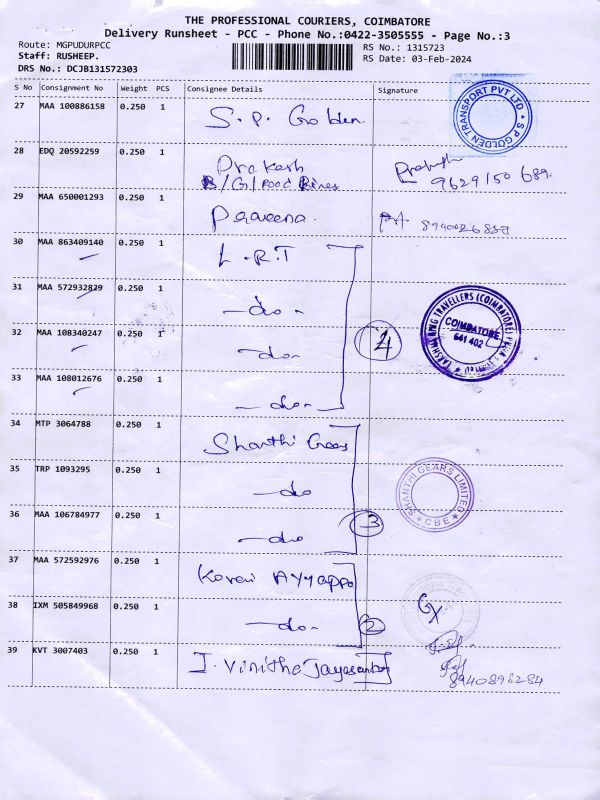 THE PROFESSIONAL COURIERS, COIMBATORE
Delivery Runsheet - PCC - Phone No.:0422-3505555 - Page No.:3
Route: MGPUDURPCC
Staff: RUSHEEP.
DRS No.: DCJB131572303
RS No.: 1315723
RS Date: 03-Feb-2024
S No Consignment No Weight PCS Consignee Details Signature
27 MAA 100886158 0.250 1 S.P. Golden
S P GOLDEN TRANSPORT PVT LTD
28 EDQ 20592259 0.250 1 Prakash Prakash
9629150 689
29 MAA 650001293 0.250 1 Praveena.
30 MAA 863409140 0.250 1 L.R.T
31 MAA 572932829 0.250 1 -do-
32 MAA 108340247 0.250 1 -do-
4
COIMBATORE
641 402
33 MAA 108012676 0.250 1 -do-
34 MTP 3064788 0.250 1 Shanthi Gears
35 TRP 1093295 0.250 1 -do
SHANTHI GEARS LIMITED
CBE
36 MAA 106784977 0.250 1 -do
3
37 MAA 572592976 0.250 1 Kovai Ayyappa
38 IXM 505849968 0.250 1 -do-
2
39 KVT 3007403 0.250 1 J. Vinitha Jayasankar
8940898284